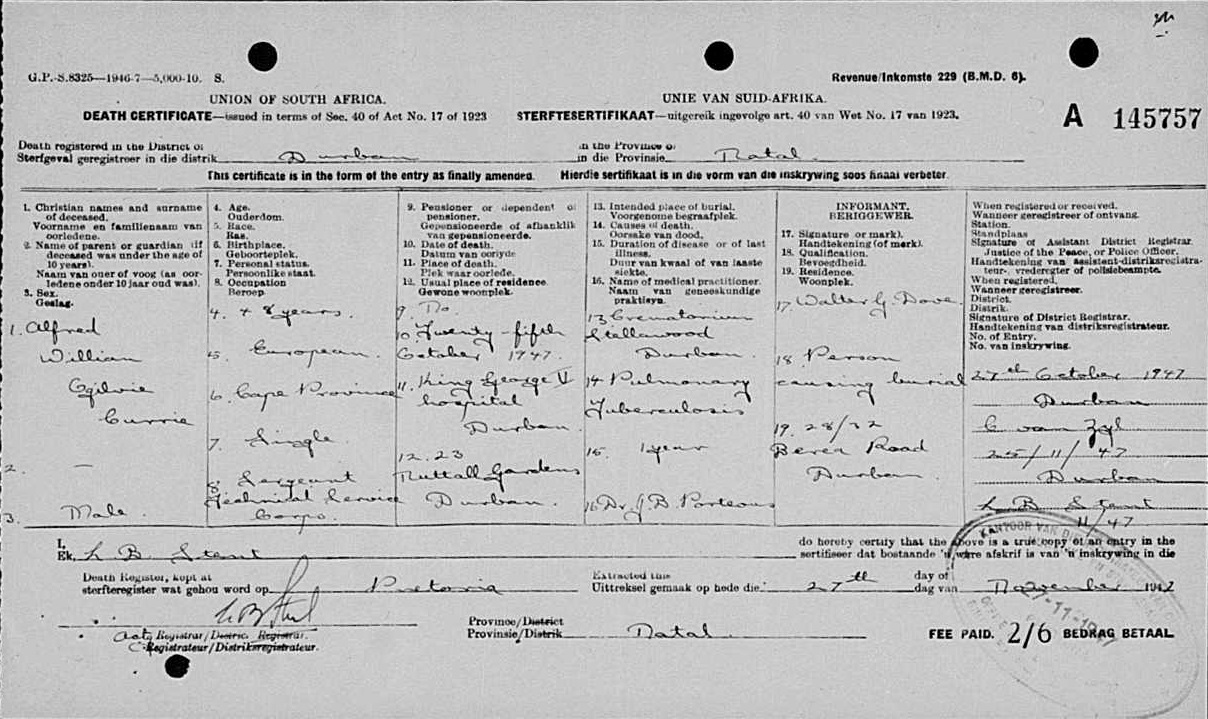 G.P.-S.8325—1946-7—5,000-10. S.
Revenue/Inkomste 229 (B.M.D. 6).
UNION OF SOUTH AFRICA.
UNIE VAN SUID-AFRIKA.
DEATH CERTIFICATE—issued in terms of Sec. 40 of Act No. 17 of 1923
STERFTESERTIFIKAAT—uitgereik ingevolge art. 40 van Wet No. 17 van 1923.
A 145757
Death registered in the District of
Sterfgeval geregistreer in die distrik Durban
in the Province of
in die Provinsie Natal.
This certificate is in the form of the entry as finally amended. Hierdie sertifikaat is in die vorm van die inskrywing soos finaal verbeter.
1. Christian names and surname
of deceased.
Voorname en familienaam van
oorledene.
2. Name of parent or guardian (if
deceased was under the age of
10 years).
Naam van ouer of voog (as oor-
ledene onder 10 jaar oud was).
3. Sex.
Geslag.
1. Alfred
William
Ogilvie
Currie
2. —
3. Male.
4. Age.
Ouderdom.
5. Race.
Ras.
6. Birthplace.
Geboorteplek.
7. Personal status.
Persoonlike staat.
8. Occupation
Beroep.
4. 48 years.
5. European.
6. Cape Province
7. Single.
8. Sergeant
Technical Service
Corps.
9. Pensioner or dependent of
pensioner.
Gepensioneerde of afhanklik
van gepensioneerde.
10. Date of death.
Datum van oorlyde
11. Place of death.
Plek waar oorlede.
12. Usual place of residence.
Gewone woonplek.
9. No.
10. Twenty-fifth
October 1947.
11. King George V
hospital
Durban.
12. 23
Nuttall Gardens
Durban.
13. Intended place of burial.
Voorgenome begraafplek.
14. Causes of death.
Oorsake van dood.
15. Duration of disease or of last
illness.
Duur van kwaal of van laaste
siekte.
16. Name of medical practitioner.
Naam van geneeskundige
praktisyn.
13 Crematorium
Stellawood
Durban.
14 Pulmonary
Tuberculosis
15. 1 year
16 Dr. J. B. Porteous
INFORMANT.
BERIGGEWER.
17. Signature or mark).
Handtekening (of merk).
18. Qualification.
Bevoegdheid.
19. Residence.
Woonplek.
17. Walter G. Dove.
18. Person
causing burial
19. 28/32
Berea Road
Durban
When registered or received.
Wanneer geregistreer of ontvang.
Station.
Standplaas
Signature of Assistant District Registrar,
Justice of the Peace, or Police Officer.
Handtekening van assistent-distriksregistra-
teur-, vrederegter of polisiebeampte.
When registered.
Wanneer geregistreer.
District.
Distrik.
Signature of District Registrar.
Handtekening van distriksregistrateur.
No. of Entry.
No. van inskrywing.
27th October 1947
Durban
C van Zyl
25/11/47
Durban
L. B. Stent
11/47
I,
Ek, L B. Stent
do hereby certify that the above is a true copy of an entry in the
sertifiseer dat bostaande 'n ware afskrif is van 'n inskrywing in die
Death Register, kept at
sterfteregister wat gehou word op Pretoria
Extracted this
Uittreksel gemaak op hede die 27th
day of
dag van November 1947
LB Stent
Actg Registrar/District Registrar.
Registrateur/Distriksregistrateur.
Province/District
Provinsie/Distrik Natal
FEE PAID. 2/6 BEDRAG BETAAL
KANTOOR VAN DIE
27-11-1947